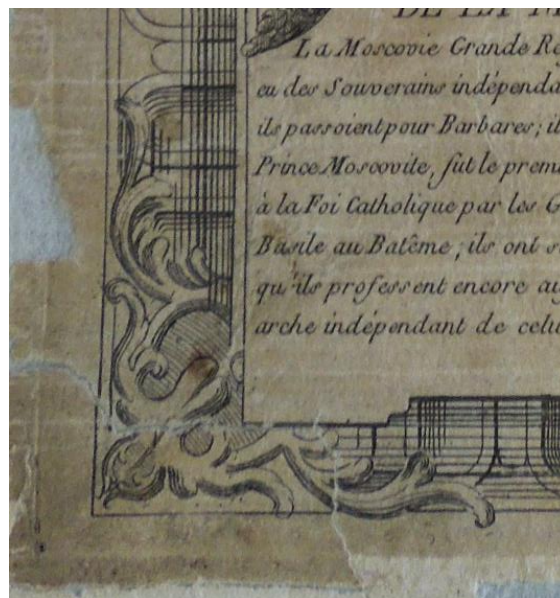 DE LA
La Moscovie Grande Ré
eu des Souverains indépenda
ils passoient pour Barbares; il
Prince Moscovite, fut le prem
à la Foi Catholique par les G
Basile au Batême; ils ont s
qu'ils professent encore au
arche indépendant de celu